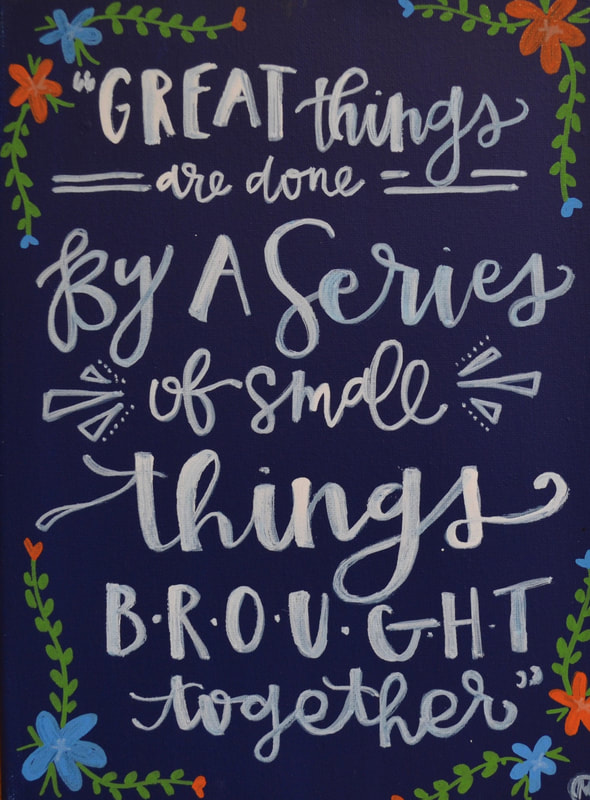 “GREAT things
are done
By A Series
of small
things
B·R·O·U·G·H·T
together”